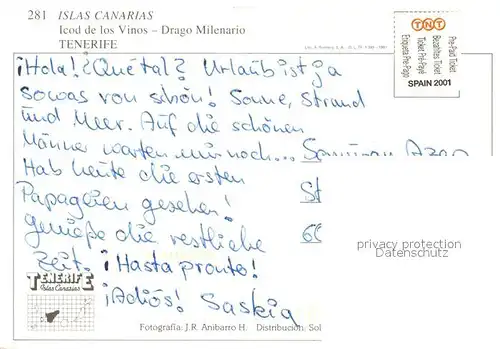 281 ISLAS CANARIAS
Icod de los Vinos – Drago Milenario
TENERIFE
TNT
Pre-Paid Ticket
Bezahltes Ticket
Ticket Pre-Payé
Etiqueta Pre-Pago
SPAIN 2001
¡Hola! ¿Qué tal? Urlaub ist ja
sowas von schön! Sonne, Strand
und Meer. Auf die schönen
Männer warten wir noch...
Hab heute die ersten
Papageien gesehen!
St
Genieße die restliche
60
Zeit. ¡Hasta pronto!
¡Adiós! Saskia
privacy protection
Datenschutz
TENERIFE
Islas Canarias
Fotografía: J.R. Anibarro H. Distribución: Sol